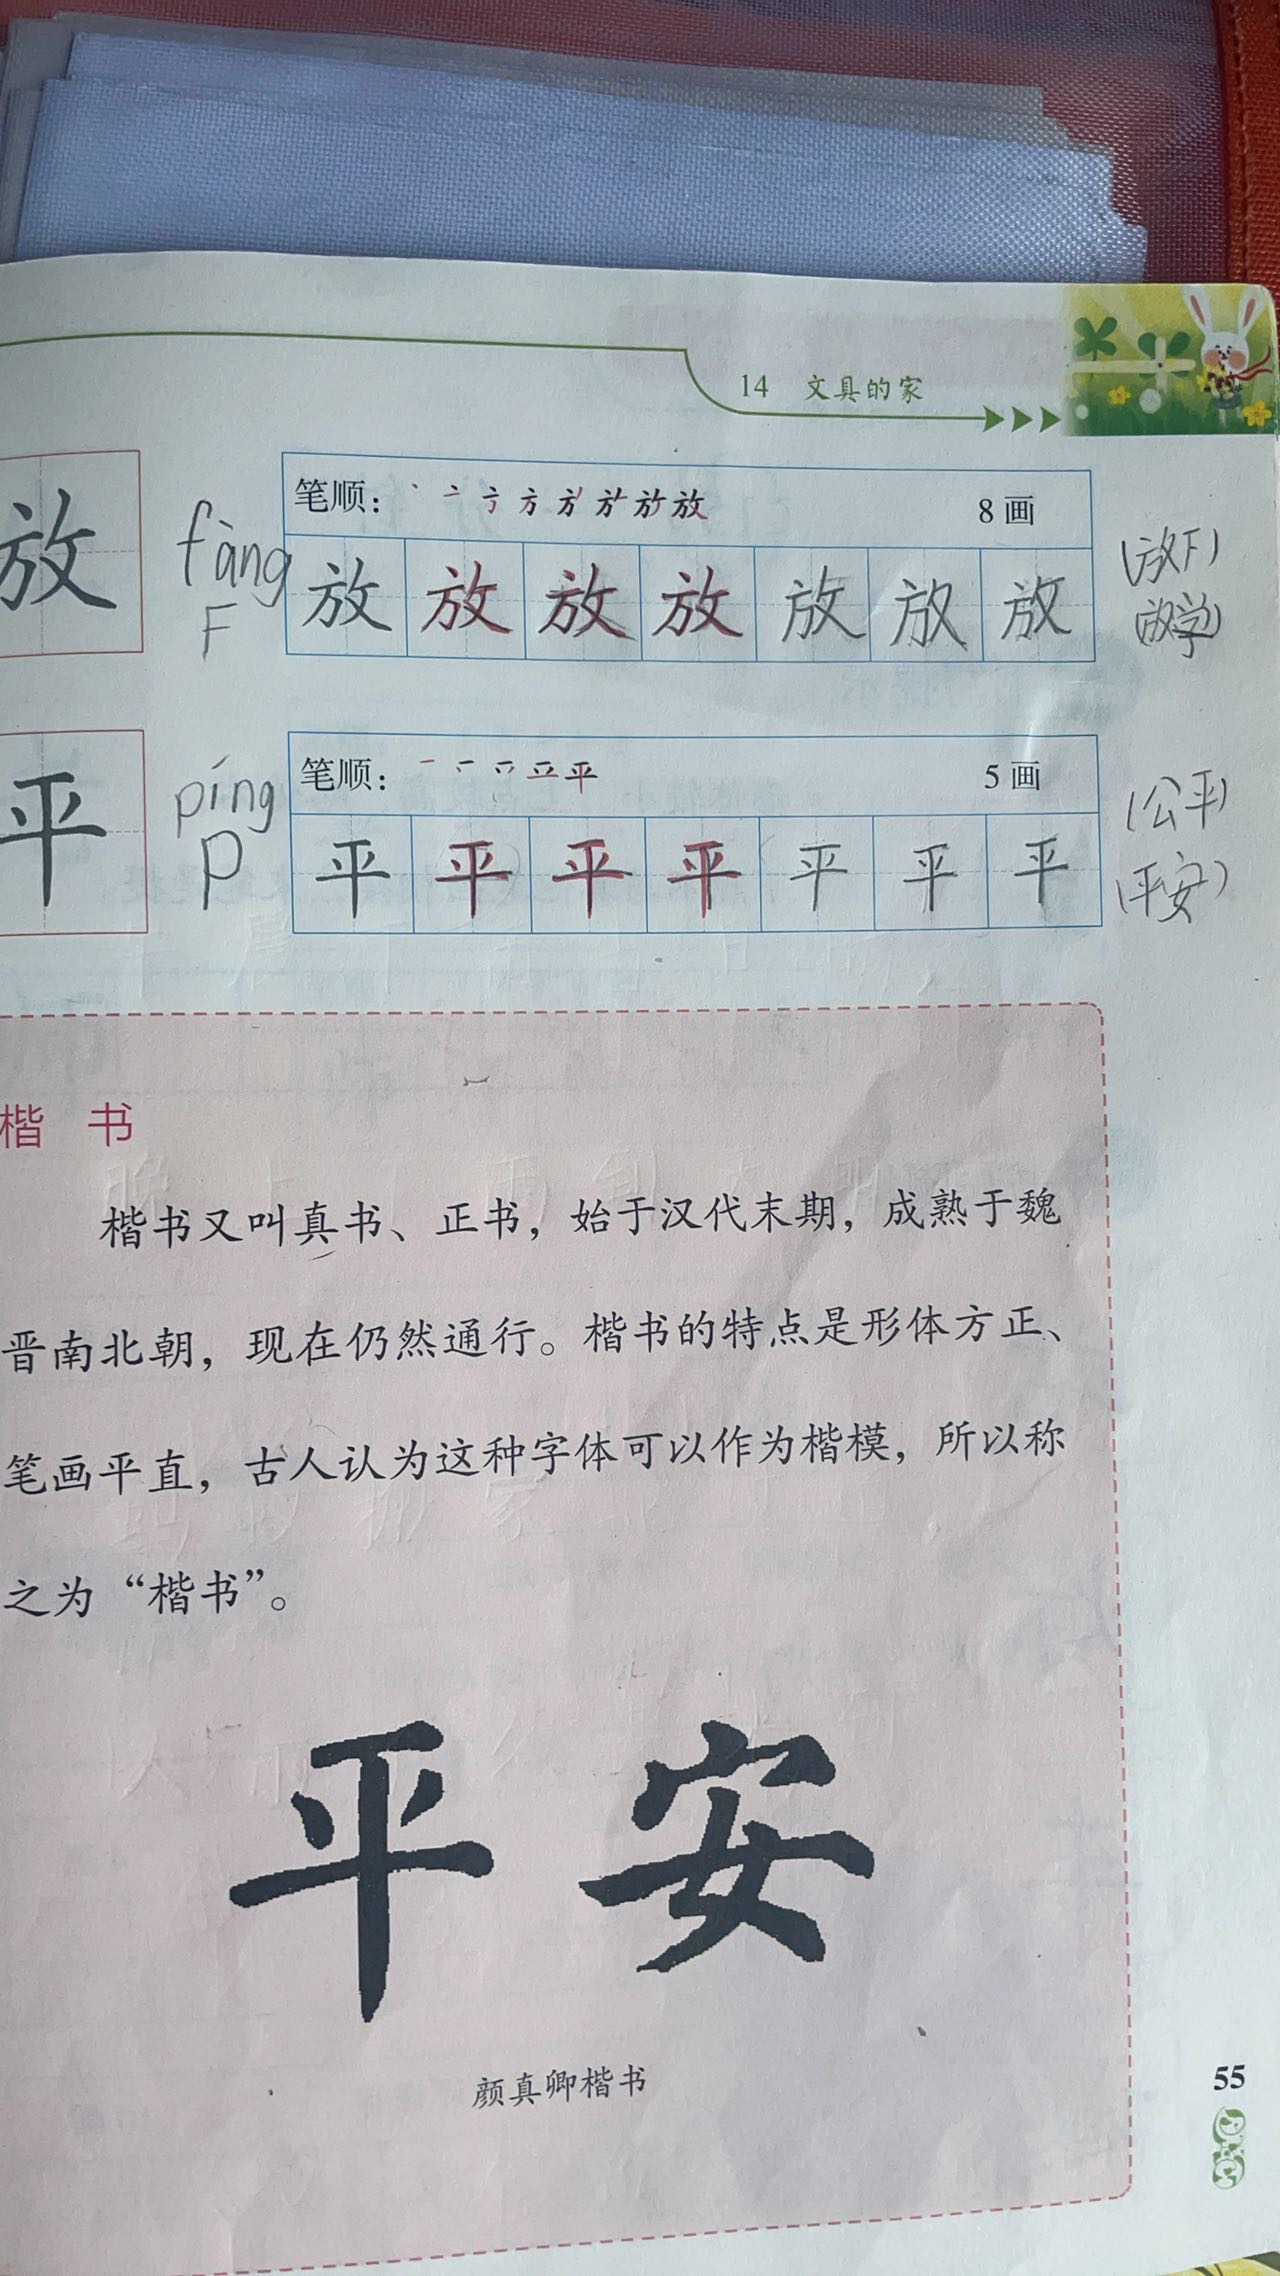 14 文具的家
放
fàng
F
笔顺： 8画
放 放 放 放 放 放 放
(放下)
(放学)
平
píng
P
笔顺： 5画
平 平 平 平 平 平 平
(公平)
(平安)
楷 书
楷书又叫真书、正书，始于汉代末期，成熟于魏
晋南北朝，现在仍然通行。楷书的特点是形体方正、
笔画平直，古人认为这种字体可以作为楷模，所以称
之为“楷书”。
平 安
颜真卿楷书
55